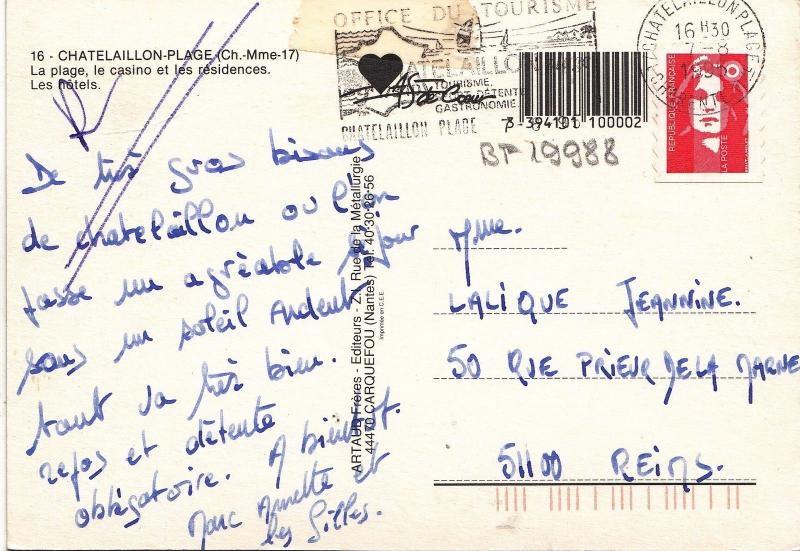 16 - CHATELAILLON-PLAGE (Ch.-Mme-17)
La plage, le casino et les résidences.
Les hôtels.
OFFICE DU TOURISME
CHATELAILLON
TOURISME,
DÉTENTE
GASTRONOMIE
CHATELAILLON PLAGE
3 394101 100002
BF 19988
CHATELAILLON PLAGE
16 H30
7-8
RÉPUBLIQUE FRANÇAISE
LA POSTE
De très gros bisous
de chatelaillon ou l'on
passe un agréable séjour
sous un soleil Ardent,
tout va très bien.
repos et détente
obligatoire. A bientôt.
Marc Annette et
les Gilles.
ARTAUD Frères - Editeurs - Z.I. Rue de la Métallurgie
44470 CARQUEFOU (Nantes) Tél. 40-30-26-56
Imprimée en C.E.E.
Mme.
LALIQUE JEANNINE.
50 RUE PRIEUR DE LA MARNE
51100 REIMS.